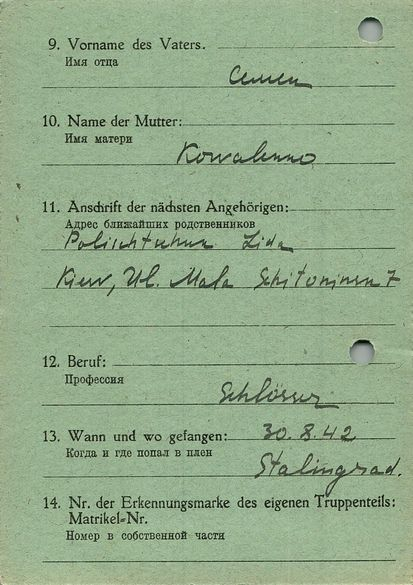 9. Vorname des Vaters.
Имя отца
Семен
10. Name der Mutter:
Имя матери
Kowalenno
11. Anschrift der nächsten Angehörigen:
Адрес ближайших родственников
Lida
Kiew, Ul. Mala 7
12. Beruf:
Профессия
Schlosser
13. Wann und wo gefangen: 30.8.42
Когда и где попал в плен
Stalingrad.
14. Nr. der Erkennungsmarke des eigenen Truppenteils:
Matrikel=Nr.
Номер в собственной части